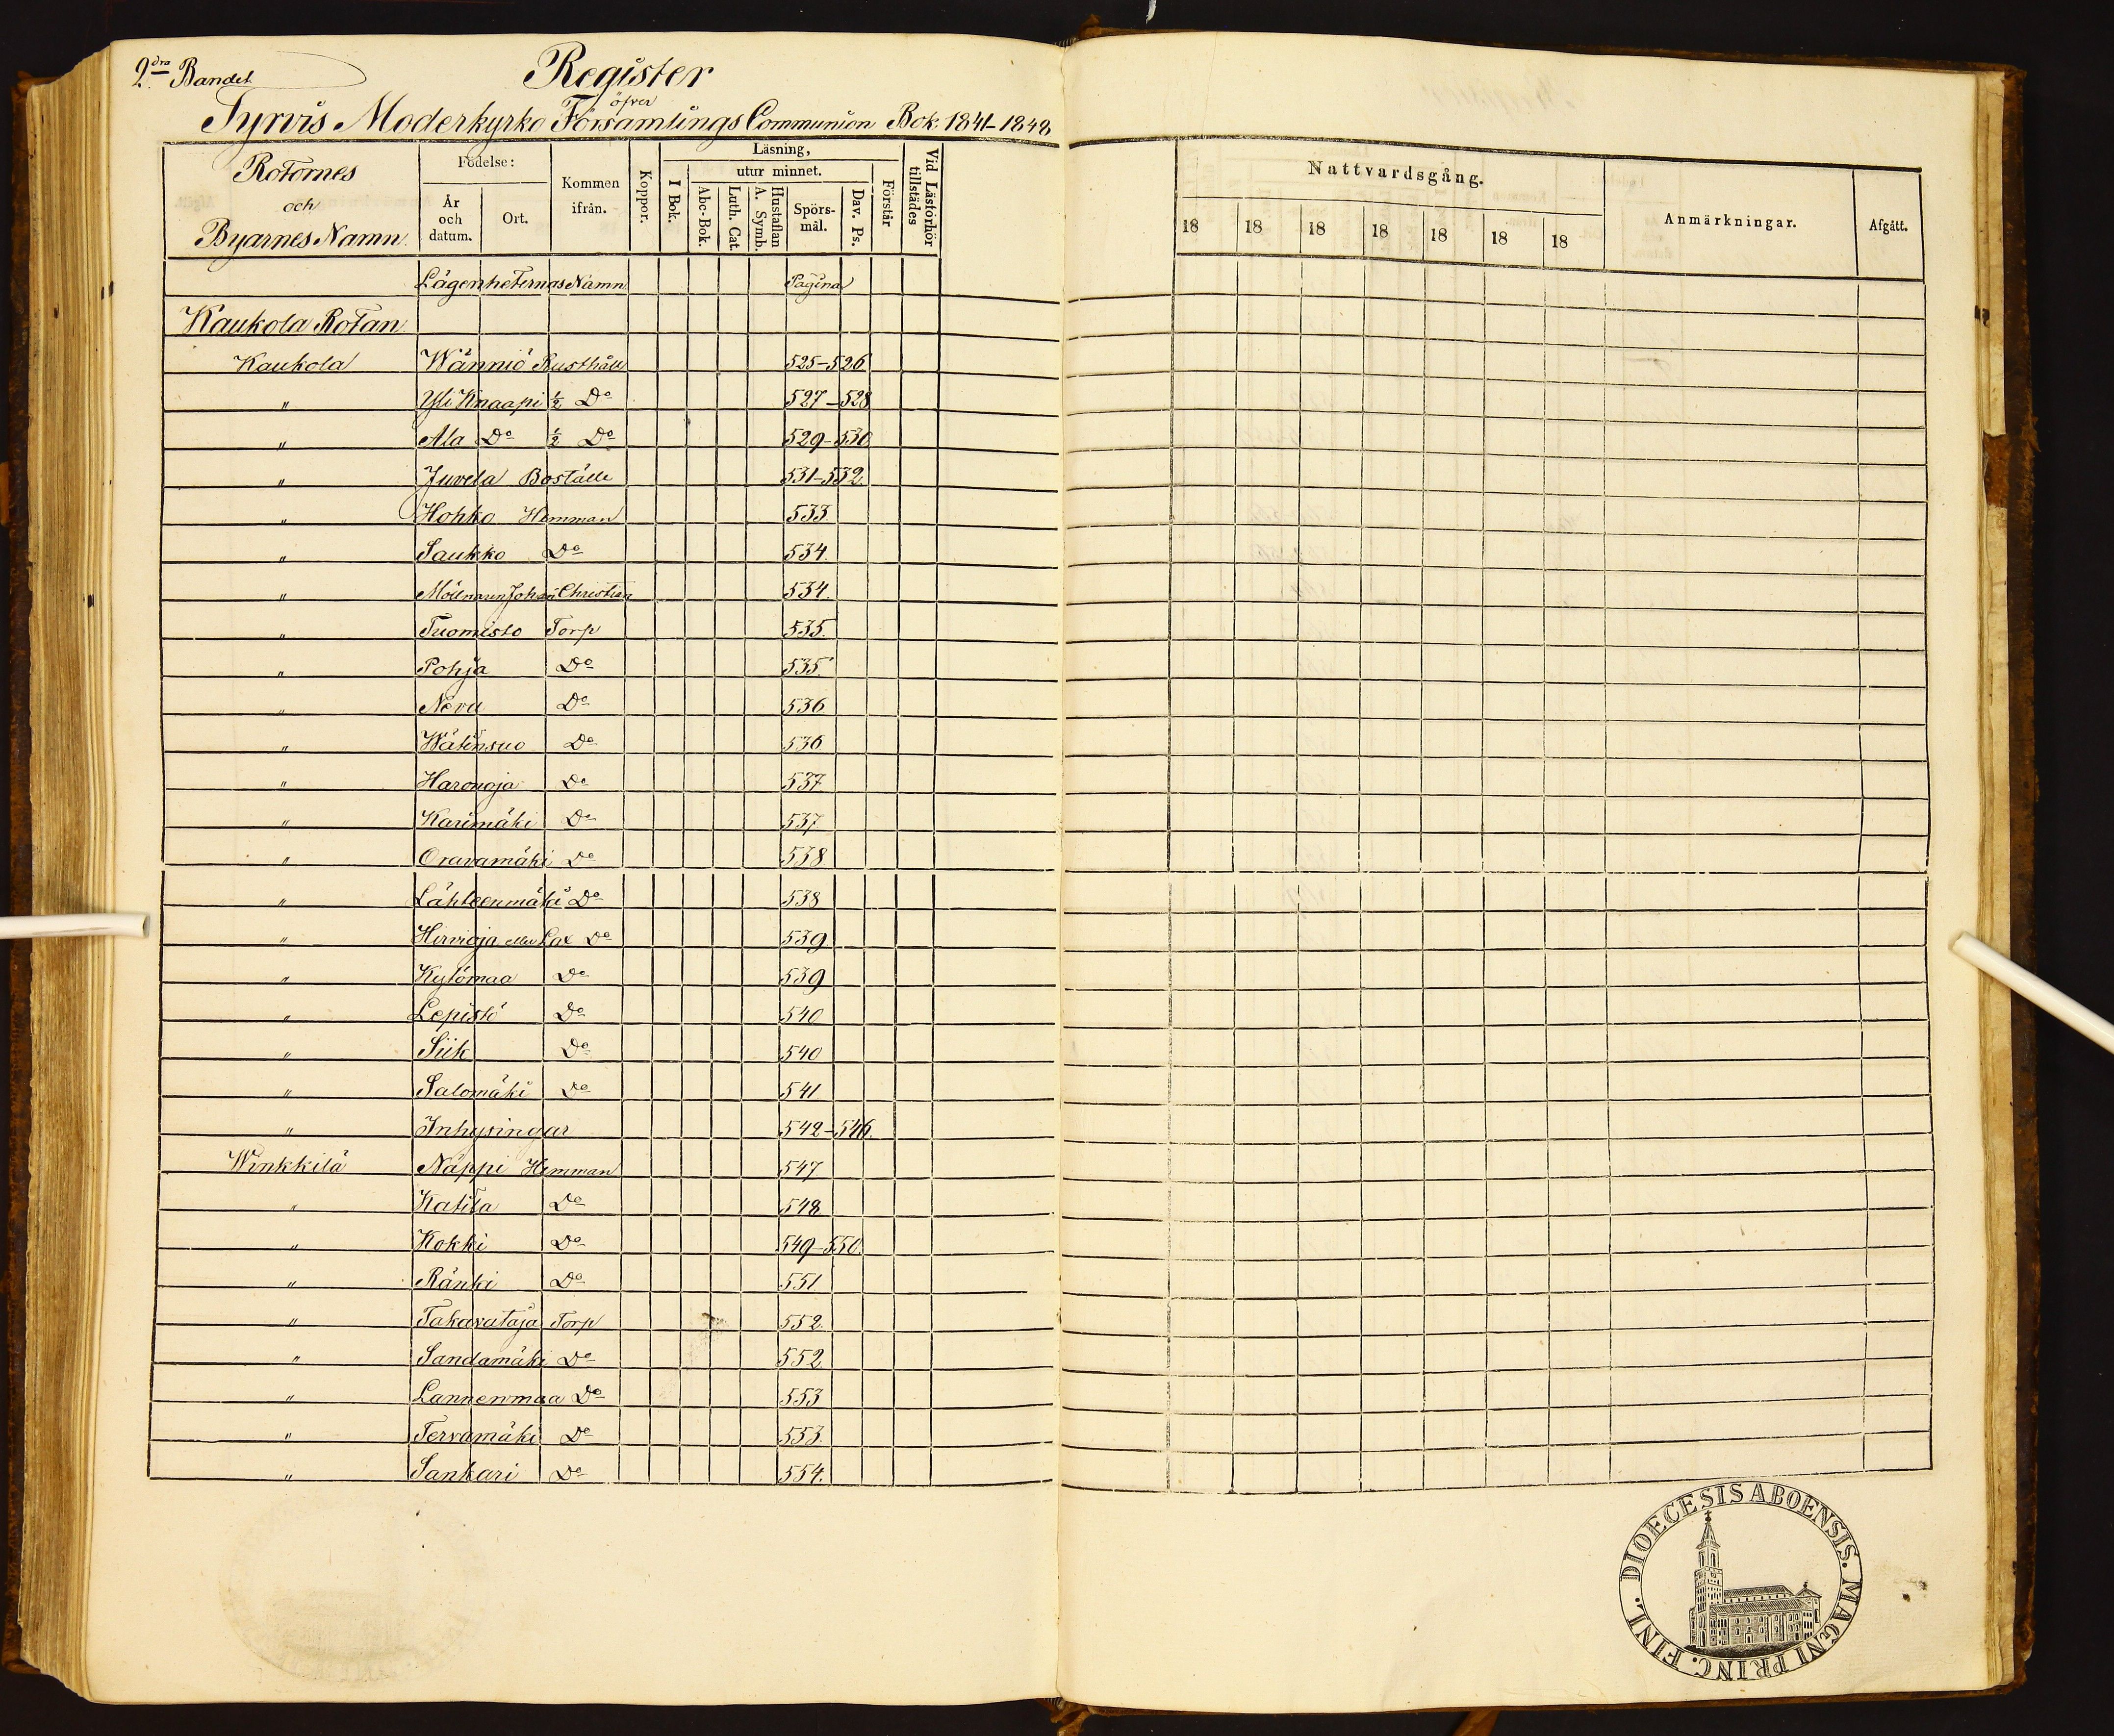 2dra Bandet
Register
öfver
Tyrvis Moderkyrko Församlings Communion Bok 1841-1848
Rotornes
och
Byarnes Namn
Födelse:
År
och
datum.
Ort.
Kommen
ifrån.
Koppor.
Läsning,
I Bok.
utur minnet.
Abc-Bok.
Luth. Cat.
Hustaflan
A. Symb.
Spörs-
mål.
Dav. Ps.
Förstår
Vid Läsförhör
tillstädes
Nattvardsgång.
18 18 18 18 18 18 18
Anmärkningar.
Afgått.
Lägenheternas Namn Pagina
Kaukola Rotan
Kaukola Wänniö Rusthåll 525-526
" Yli Knaapi ½ Do 527-528
" Ala Do ½ Do 529-530
" Juvela Boställe 531-532.
" Hohko Hemman 533.
" Saukko Do 534.
" Mölnaren Johan Christian 534.
" Tuomisto Torp 535.
" Pohja Do 535.
" Neva Do 536
" Wätinsuo Do 536
" Haronoja Do 537
" Karimäki Do 537
" Oravamäki Do 538
" Lähteenmäki Do 538
" Hirvioja eller Lax Do 539
" Kytömaa Do 539
" Lepistö Do 540
" Siik Do 540
" Salomäki Do 541
" Inhysingar 542-546.
Winkkilä Näppi Hemman 547
" Katila Do 548
" Kokki Do 549-550.
" Ränki Do 551
" Takavataja Torp 552.
" Sandamäki Do 552
" Lannenmaa Do 553
" Tervamäki Do 553.
" Sankari Do 554.
DIOECESIS ABOENSIS. MAGNI PRINC. FINL.